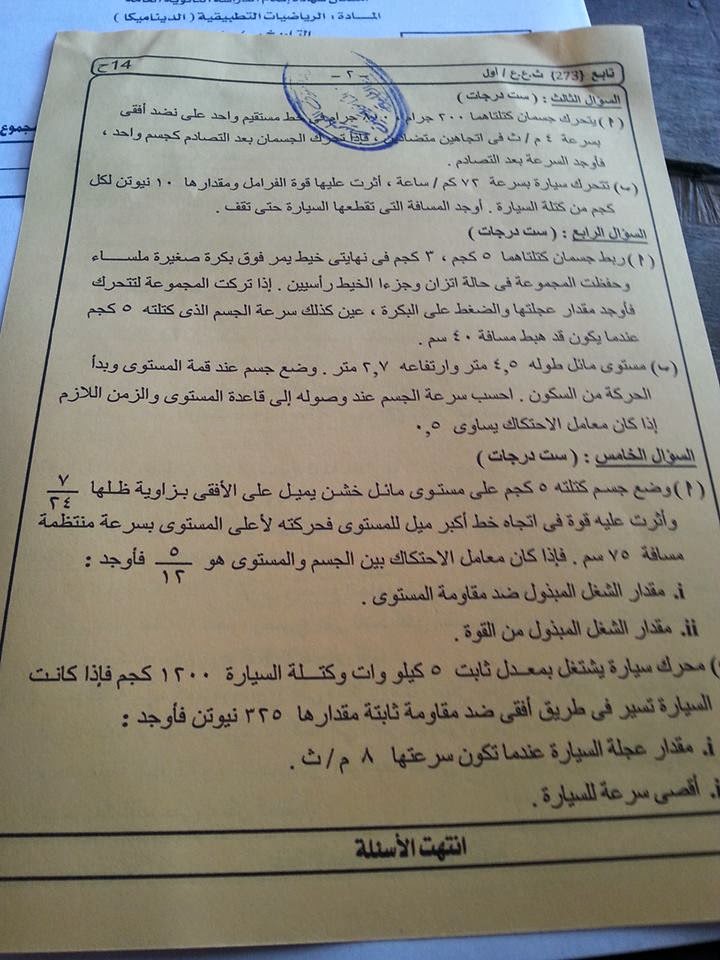 المادة : الرياضيات التطبيقية ( الديناميكا )
تابع {273} ث.ع.ع / أول
- ٢ -
14ح
السؤال الثالث : ( ست درجات )
(أ) يتحرك جسمان كتلتاهما ٢٠٠ جرام ، جرام فى خط مستقيم واحد على نضد أفقى
بسرعة ٤ م / ث فى اتجاهين متضادين ، فإذا تحرك الجسمان بعد التصادم كجسم واحد ،
فأوجد السرعة بعد التصادم .
(ب) تتحرك سيارة بسرعة ٧٢ كم / ساعة ، أثرت عليها قوة الفرامل ومقدارها ١٠ نيوتن لكل
كجم من كتلة السيارة . أوجد المسافة التى تقطعها السيارة حتى تقف .
السؤال الرابع : ( ست درجات )
(أ) ربط جسمان كتلتاهما ٥ كجم ، ٣ كجم فى نهايتى خيط يمر فوق بكرة صغيرة ملساء
وحفظت المجموعة فى حالة اتزان وجزءا الخيط رأسيين . إذا تركت المجموعة لتتحرك
فأوجد مقدار عجلتها والضغط على البكرة ، عين كذلك سرعة الجسم الذى كتلته ٥ كجم
عندما يكون قد هبط مسافة ٤٠ سم .
(ب) مستوى مائل طوله ٤,٥ متر وارتفاعه ٢,٧ متر . وضع جسم عند قمة المستوى وبدأ
الحركة من السكون . احسب سرعة الجسم عند وصوله إلى قاعدة المستوى والزمن اللازم
إذا كان معامل الاحتكاك يساوى ٠,٥
السؤال الخامس : ( ست درجات )
(أ) وضع جسم كتلته ٥ كجم على مستوى مائل خشن يميل على الأفقى بزاوية ظلها ٧/٢٤
وأثرت عليه قوة فى اتجاه خط أكبر ميل للمستوى فحركته لأعلى المستوى بسرعة منتظمة
مسافة ٧٥ سم . فإذا كان معامل الاحتكاك بين الجسم والمستوى هو ٥/١٢ فأوجد :
i. مقدار الشغل المبذول ضد مقاومة المستوى .
ii. مقدار الشغل المبذول من القوة .
محرك سيارة يشتغل بمعدل ثابت ٥ كيلو وات وكتلة السيارة ١٢٠٠ كجم فإذا كانت
السيارة تسير فى طريق أفقى ضد مقاومة ثابتة مقدارها ٣٢٥ نيوتن فأوجد :
i. مقدار عجلة السيارة عندما تكون سرعتها ٨ م / ث .
i. أقصى سرعة للسيارة .
انتهت الأسئلة